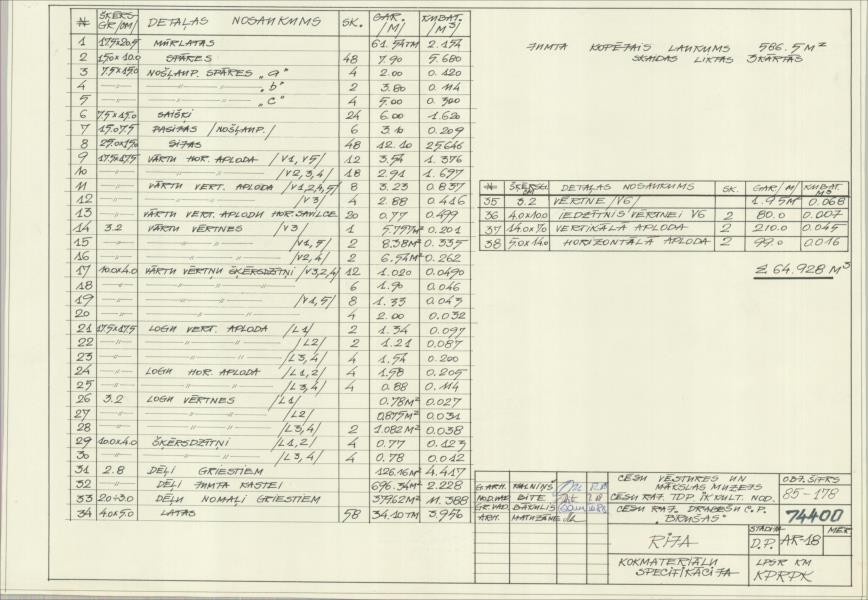 № ŠĶĒRS-GR./CM/ DETAĻAS NOSAUKUMS SK. GAR./M/ KUBAT./M³/
1 17.5×20.5 MŪRLATAS 61.54TM 2.154
2 15.0×10.0 SPĀRES 48 7.90 5.680
3 7.5×15.0 NOŠĻAUP. SPĀRES „a" 4 2.00 0.120
4 —"— —"— „b" 2 3.80 0.114
5 —"— —"— „c" 4 5.00 0.300
6 7.5×15.0 SAIŠĶI 24 6.00 1.620
7 15.0×7.5 PASIJAS /NOŠĻAUP./ 6 3.10 0.209
8 25.0×15.0 SIJAS 48 12.10 25.646
9 17.5×17.5 VĀRTU HOR. APLODA /V1,V5/ 12 3.54 1.376
10 —"— —"— /V2,3,4/ 18 2.91 1.697
11 —"— VĀRTU VERT. APLODA /V1,2,4,5/ 8 3.23 0.837
12 —"— —"— /V3/ 4 2.88 0.416
13 —"— VĀRTU VERT. APLODU HOR. SAVILCE 20 0.77 0.499
14 3.2 VĀRTU VĒRTNES /V3/ 1 5.757M² 0.201
15 —"— —"— /V1,5/ 2 8.38M² 0.335
16 —"— —"— /V2,4/ 2 6.54M² 0.262
17 10.0×4.0 VĀRTU VĒRTŅU ŠĶĒRSDZĪTŅI /V3,2,4/ 12 1.020 0.0490
18 —"— —"— 6 1.90 0.046
19 —"— —"— /V1,5/ 8 1.33 0.043
20 —"— —"— 4 2.00 0.032
21 17.5×17.5 LOGU VERT. APLODA /L1/ 2 1.34 0.097
22 —"— —"— /L2/ 2 1.21 0.087
23 —"— —"— /L3,4/ 4 1.54 0.200
24 —"— LOGU HOR. APLODA /L1,2/ 4 1.58 0.205
25 —"— —"— /L3,4/ 4 0.88 0.114
26 3.2 LOGU VĒRTNES /L1/ 0.78M² 0.027
27 —"— —"— /L2/ 0.875M² 0.031
28 —"— —"— /L3,4/ 2 1.082M² 0.038
29 10.0×4.0 ŠĶĒRSDZĪTŅI /L1,2/ 4 0.77 0.123
30 —"— —"— /L3,4/ 4 0.78 0.012
31 2.8 DĒĻI GRIESTIEM 126.16M² 4.417
32 —"— DĒĻI JUMTA KASTEI 696.34M² 2.228
33 20÷3.0 DĒĻU NOMAĻI GRIESTIEM 379.62M² 11.388
34 4.0×5.0 LATAS 58 34.10TM 3.956
JUMTA KOPĒJAIS LAUKUMS 586.5M²
SKAIDAS LIKTAS 3KĀRTĀS
№ ŠĶĒRSG./CM DETAĻAS NOSAUKUMS SK. GAR/M/ KUBAT. M³
35 3.2 VĒRTNE /V6/ 1.95M² 0.068
36 4.0×10.0 IEDZĪTNIS VĒRTNEI V6 2 80.0 0.007
37 14.0×7.0 VERTIKĀLĀ APLODA 2 210.0 0.045
38 5.0×14.0 HORIZONTĀLĀ APLODA 2 99.0 0.016
Σ 64.928 M³
G.ARH. KALNIŅŠ
NOD.VAD. BITE
GR.VAD. BAKULIS
ARH. MATUZĀNE
CĒSU VĒSTURES UN
MĀKSLAS MUZEJS
CĒSU RAJ. TDP. IK KULT. NOD.
CĒSU RAJ. DRABEŠU C.P.
„BRUŠAS"
OBJ. ŠIFRS
85-178
74400
RIJA
STADIJA
D.P. AR-18
MĒR.
KOKMATERIĀLU
SPECIFIKĀCIJA
LPSR KM
KPRPK